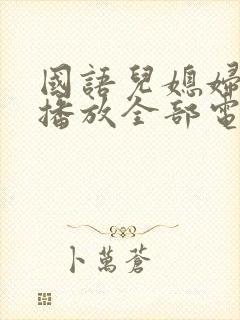 國語兒媳婦
播放全部電
卜萬蒼